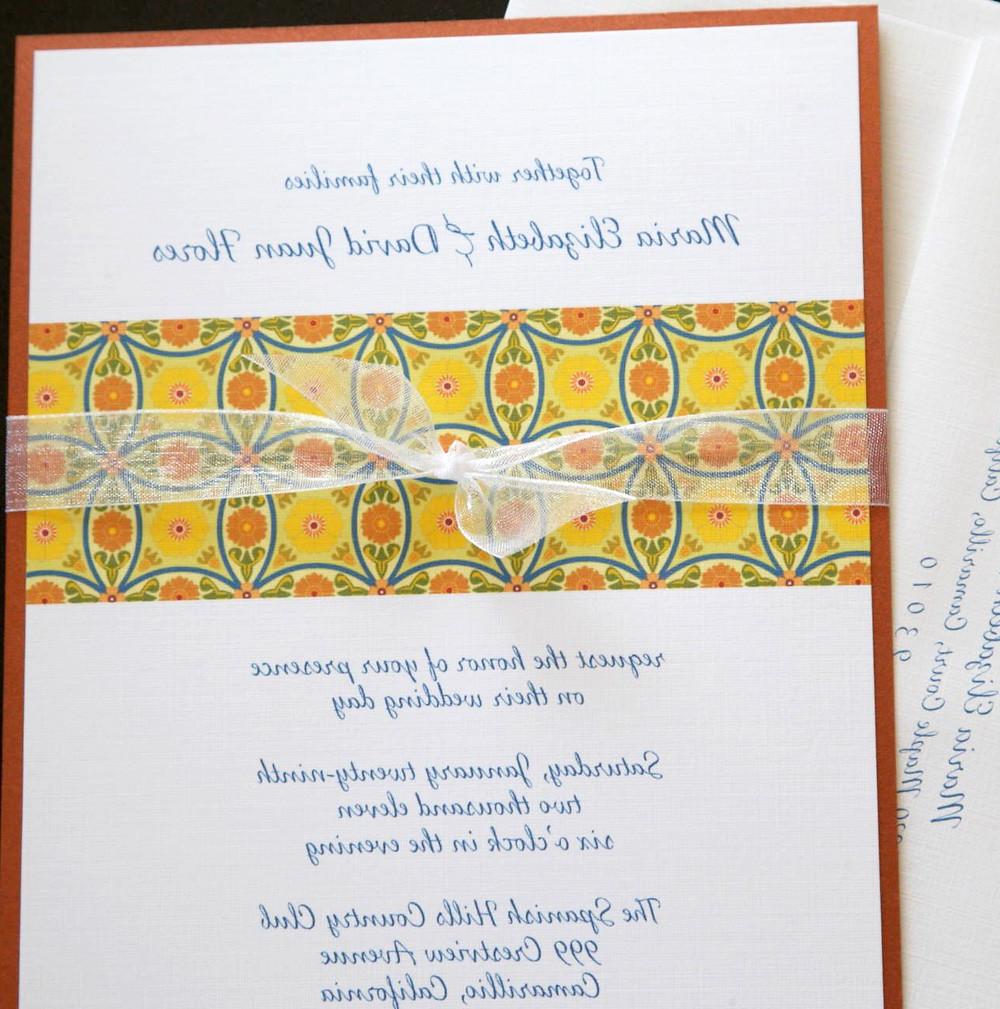 Together with their families
Maria Elizabeth & David Juan Flores
request the honor of your presence
on their wedding day
Saturday, January twenty-ninth
two thousand eleven
six o'clock in the evening
The Spanish Hills Country Club
999 Crestview Avenue
Camarillio, California
Maria Elizabeth
Maple Court, Camarillo,
93010